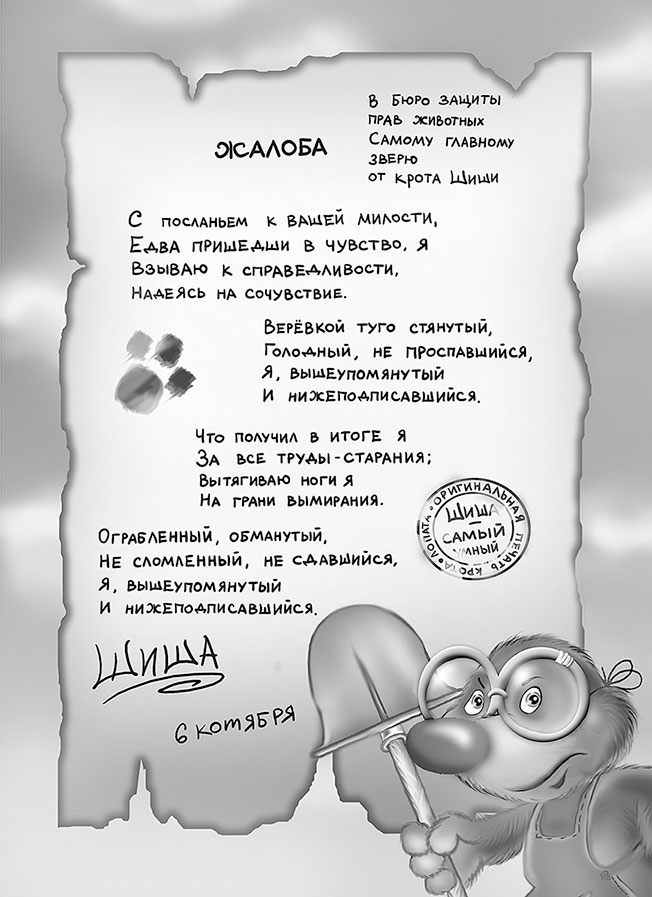 В БЮРО ЗАЩИТЫ
ПРАВ ЖИВОТНЫХ
САМОМУ ГЛАВНОМУ
ЗВЕРЮ
ОТ КРОТА ШИШИ
ЖАЛОБА
С ПОСЛАНЬЕМ К ВАШЕЙ МИЛОСТИ,
ЕДВА ПРИШЕДШИ В ЧУВСТВО, Я
ВЗЫВАЮ К СПРАВЕДЛИВОСТИ,
НАДЕЯСЬ НА СОЧУВСТВИЕ.
ВЕРЁВКОЙ ТУГО СТЯНУТЫЙ,
ГОЛОДНЫЙ, НЕ ПРОСПАВШИЙСЯ,
Я, ВЫШЕУПОМЯНУТЫЙ
И НИЖЕПОДПИСАВШИЙСЯ.
ЧТО ПОЛУЧИЛ В ИТОГЕ Я
ЗА ВСЕ ТРУДЫ-СТАРАНИЯ;
ВЫТЯГИВАЮ НОГИ Я
НА ГРАНИ ВЫМИРАНИЯ.
ОРИГИНАЛЬНАЯ ПЕЧАТЬ КРОТА • ЛОПАТА •
ШИША –
САМЫЙ
УМНЫЙ
ОГРАБЛЕННЫЙ, ОБМАНУТЫЙ,
НЕ СЛОМЛЕННЫЙ, НЕ СДАВШИЙСЯ,
Я, ВЫШЕУПОМЯНУТЫЙ
И НИЖЕПОДПИСАВШИЙСЯ.
ШИША
6 КОТЯБРЯ